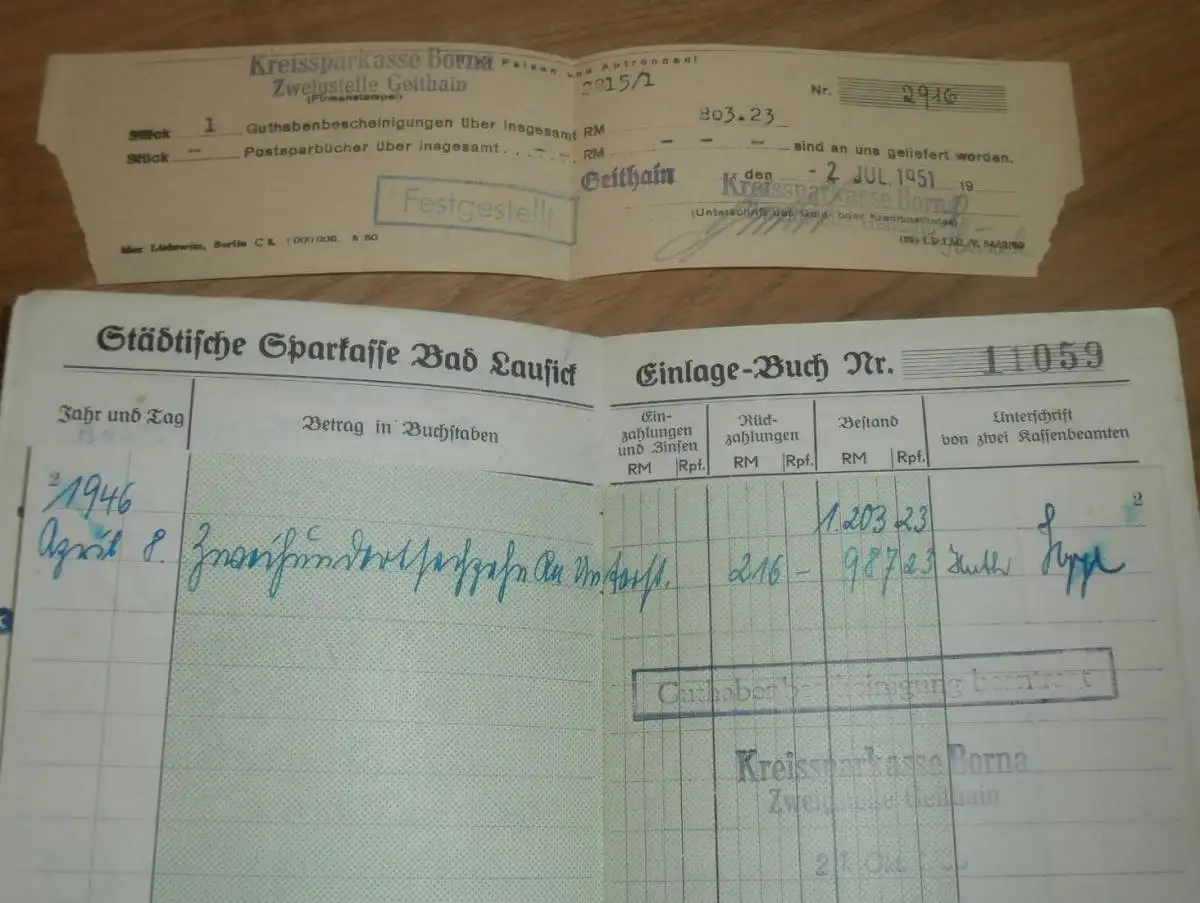 Kreissparkasse Borna
Zweigstelle Geithain
(Firmenstempel)
Falzen und Abtrennen!
2815/1
Nr. 2916
Stück 1 Guthabenbescheinigungen über insgesamt RM 803.23
Stück – Postsparbücher über insgesamt . . . – . – . RM – – – sind an uns geliefert worden.
Geithain den - 2. JUL. 1951 19
Festgestellt
Kreissparkasse Borna
(Unterschrift des Geld- oder Kreditinstitutes)
Berlin C 2. 1 000 000. 8 50
Städtische Sparkasse Bad Lausick
Einlage-Buch Nr. 11059
Jahr und Tag
Betrag in Buchstaben
Ein-
zahlungen
und Zinsen
RM Rpf.
Rück-
zahlungen
RM Rpf.
Bestand
RM Rpf.
Unterschrift
von zwei Kassenbeamten
2
1946
1.203 23
2
April 8. Zweihundertsechzehn 216 – 987 23
Guthabenbescheinigung beantragt
Kreissparkasse Borna
Zweigstelle Geithain
Okt.